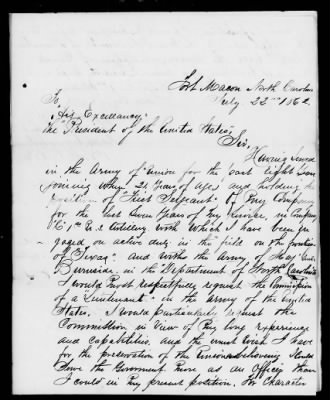 Fort Macon North Carolina
July 22nd 1862
To
His Excellancy
the President of the United States
Sir,
Having served
in the Army of Union for the past Eight years
joining when 21 Years of Ages and holding the
position of "First Sergeant" of my Company
for the last Seven Years of my Service, in Company
"C" 1st U.S. Artillery with which I have been en
gaged on active duty in the field on the frontier
of Texas and with the Army of Maj Genl
Burnside in the "Department of North Carolina
I would most respectfully request the Commission
of a "Lieutenant" in the Army of the United
States. I would particularly request the
Commission in view of my long experience
and capabilities and the great love I have
for the preservation of the Union believing I could
serve the Government more as an Officer than
I could in my present position. for Character